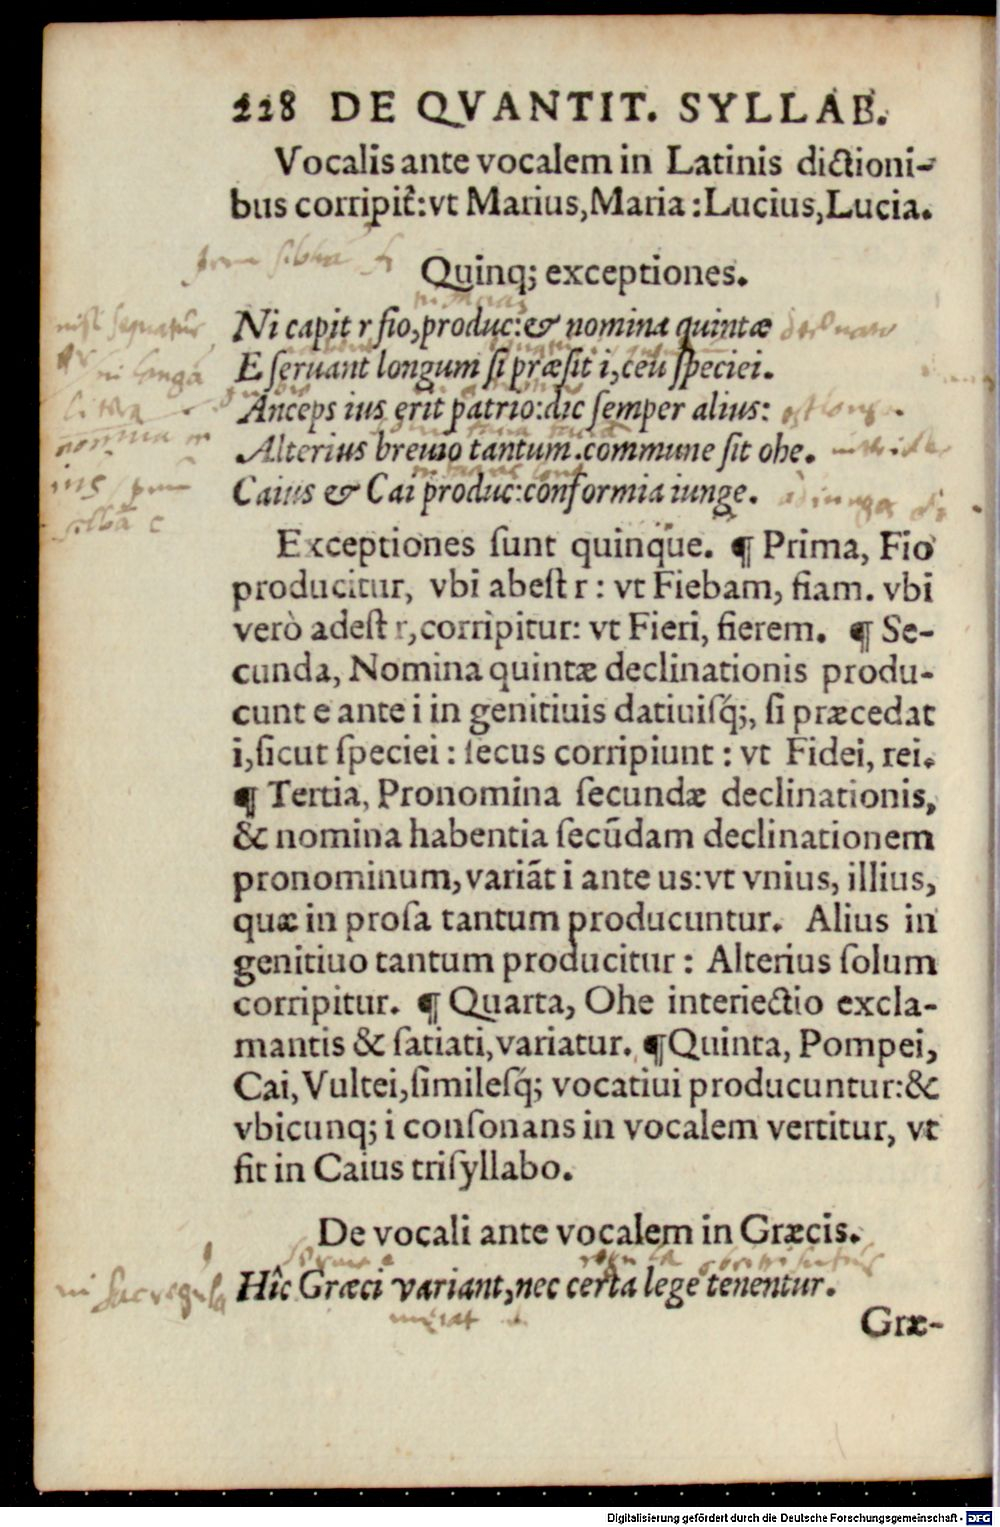 228 DE QVANTIT. SYLLAB.
Vocalis ante vocalem in Latinis dictioni-
bus corripit̃: vt Marius, Maria: Lucius, Lucia.
Quinq; exceptiones.
Ni capit r fio, produc: & nomina quintæ
E seruant longum si præsit i, ceu speciei.
Anceps ius erit patrio: dic semper alius:
Alterius breuio tantum. commune sit ohe.
Caius & Cai produc: conformia iunge.
Exceptiones sunt quinque. ¶ Prima, Fio
producitur, vbi abest r: vt Fiebam, fiam. vbi
verò adest r, corripitur: vt Fieri, fierem. ¶ Se-
cunda, Nomina quintæ declinationis produ-
cunt e ante i in genitiuis datiuisq́;, si præcedat
i, sicut speciei: secus corripiunt: vt Fidei, rei.
¶ Tertia, Pronomina secundæ declinationis,
& nomina habentia secũdam declinationem
pronominum, variãt i ante us: vt vnius, illius,
quæ in prosa tantum producuntur. Alius in
genitiuo tantum producitur: Alterius solum
corripitur. ¶ Quarta, Ohe interiectio excla-
mantis & satiati, variatur. ¶ Quinta, Pompei,
Cai, Vultei, similesq́; vocatiui producuntur: &
vbicunq; i consonans in vocalem vertitur, vt
fit in Caius trisyllabo.
De vocali ante vocalem in Græcis.
Hîc Græci variant, nec certa lege tenentur.
Græ-
Digitalisierung gefördert durch die Deutsche Forschungsgemeinschaft - DFG